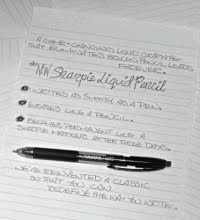 A GAME-CHANGING LIQUID GRAPHITE
THAT ELIMINATES BROKEN PENCIL LEADS
FOREVER.
NEW Sharpie Liquid Pencil
WRITES AS SMOOTH AS A PEN.
ERASES LIKE A PENCIL.
BECOMES PERMANENT LIKE A
SHARPIE MARKER AFTER THREE DAYS.
WE'VE REINVENTED A CLASSIC
SO THAT YOU CAN
REDEFINE THE WAY YOU WRITE.